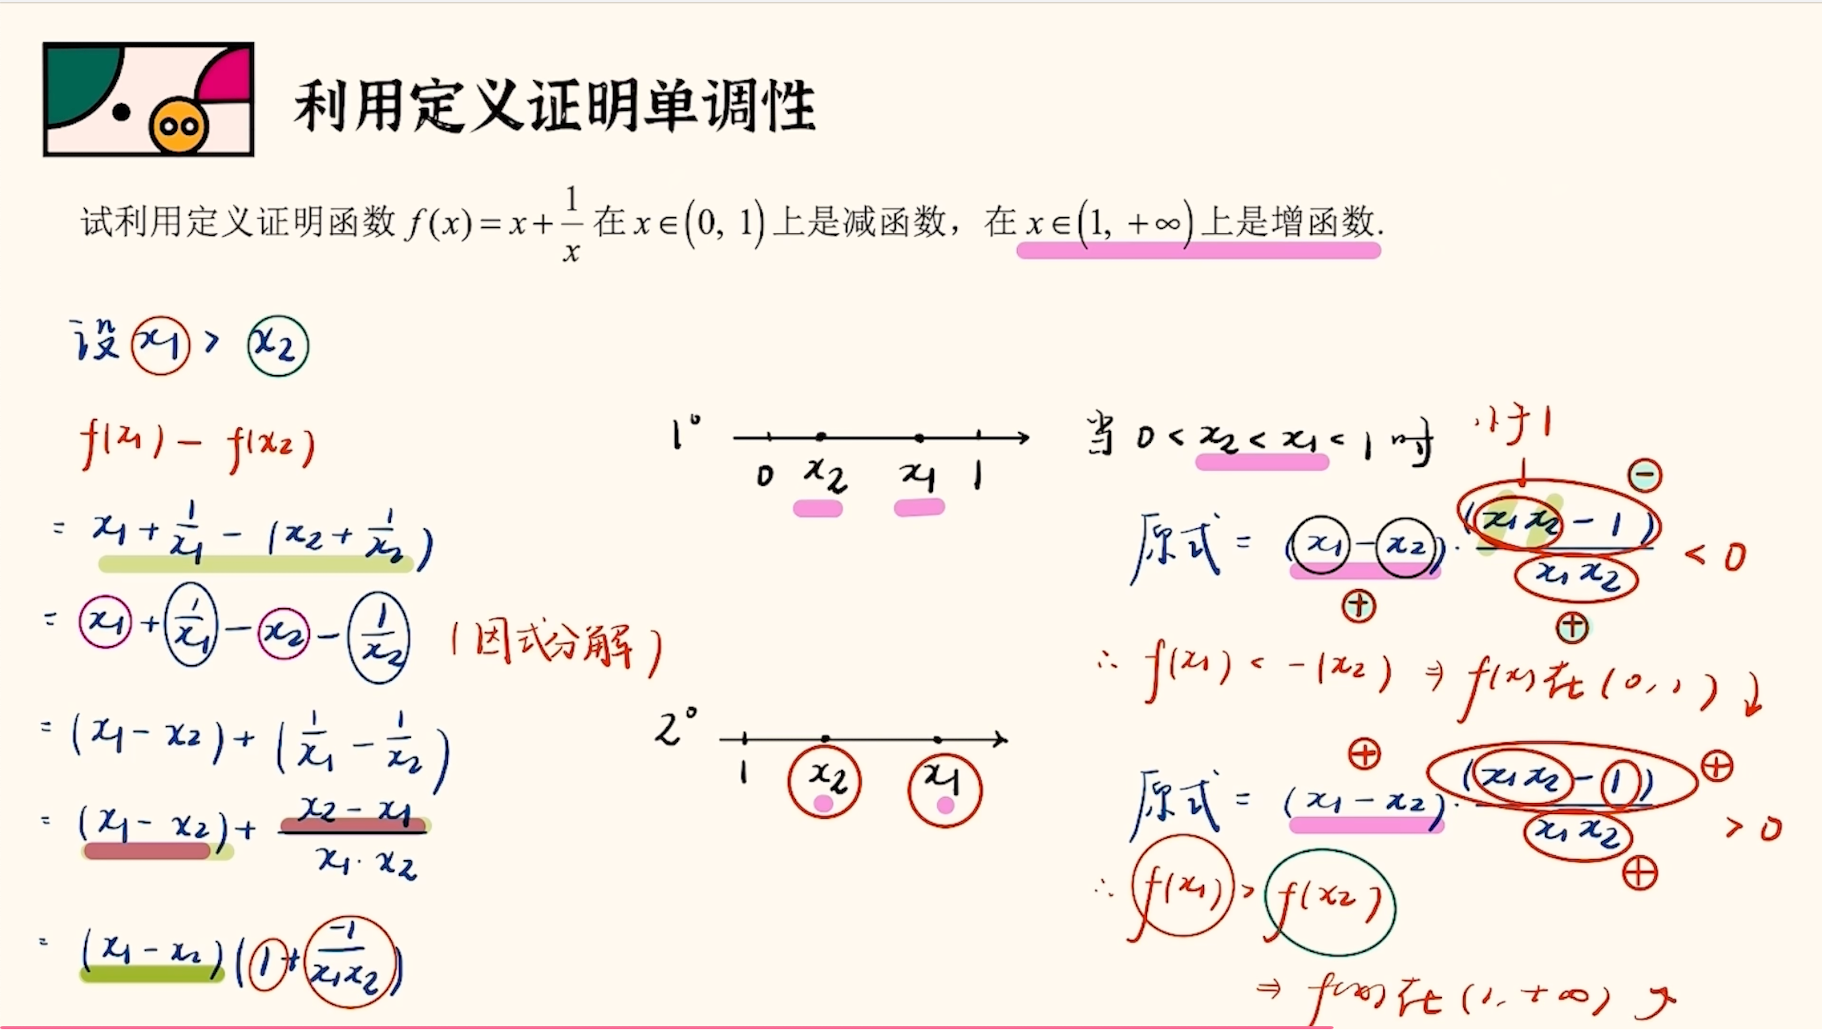 利用定义证明单调性
试利用定义证明函数 f(x) = x + 1/x 在 x∈(0, 1)上是减函数，在 x∈(1, +∞)上是增函数.
设 x₁ > x₂
f(x₁) - f(x₂)
= x₁ + 1/x₁ - (x₂ + 1/x₂)
= x₁ + 1/x₁ - x₂ - 1/x₂ (因式分解)
= (x₁ - x₂) + (1/x₁ - 1/x₂)
= (x₁ - x₂) + (x₂ - x₁)/(x₁·x₂)
= (x₁ - x₂)(1 + -1/(x₁x₂))
1°
0 x₂ x₁ 1
2°
1 x₂ x₁
当 0 < x₂ < x₁ < 1 时
小于1
原式 = (x₁ - x₂)·(x₁x₂ - 1)/(x₁x₂) < 0
⊕ ⊖ ⊕
∴ f(x₁) < -(x₂) ⇒ f(x)在(0,1)↓
原式 = (x₁ - x₂)·(x₁x₂ - 1)/(x₁x₂) > 0
⊕ ⊕ ⊕
∴ f(x₁) > f(x₂)
⇒ f(x)在(1, +∞)↗